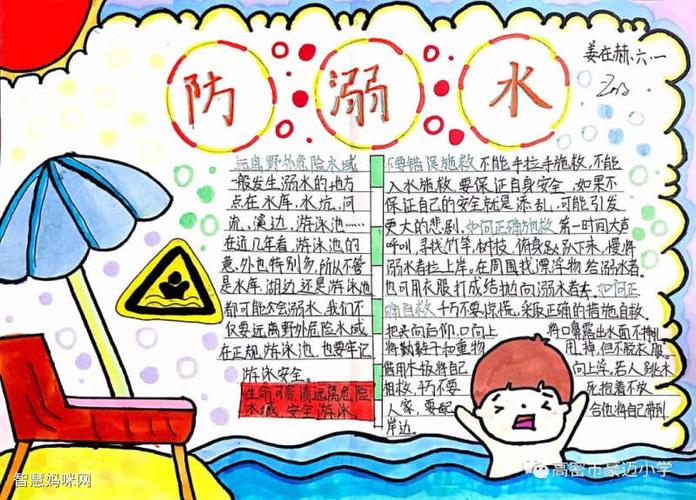 防溺水
姜在赫 六·一
远离野外危险水域
一般发生溺水的地方
点在水库,水坑,河
流、溪边,游泳池……
在近几年看,游泳池的
意外也特别多,所以不管
是水库,湖边,还是游泳池
都可能会溺水,我们不
仅要远离野外危险水域
在正规,游泳池,也要牢记
游泳安全。
生命可贵,请远离危险
水域,安全游泳。
不要错误施救 不能手拉手施救,不能
入水施救,要保证自身安全,如果不
保证自己的安全就是添乱,可能引发
更大的悲剧,如何正确施救 第一时间大声
呼叫,寻找竹竿,树枝,俯身趴下来,慢将
溺水者拉上岸。在周围找漂浮物给溺水者。
也可用衣服打成结抛向溺水者去。如何正
确自救 千万不要惊慌,采取正确的措施自救。
把头向后仰,口向上
将口鼻露出水面不挣扎
将鞋子和重物
甩掉,但不脱衣服
借用木板将自己
向上浮,若人跳水
相救,千万不要
死抱着不放
人家,要配
合他将自己带到
岸边。
智慧妈咪网
高密市豪迈小学